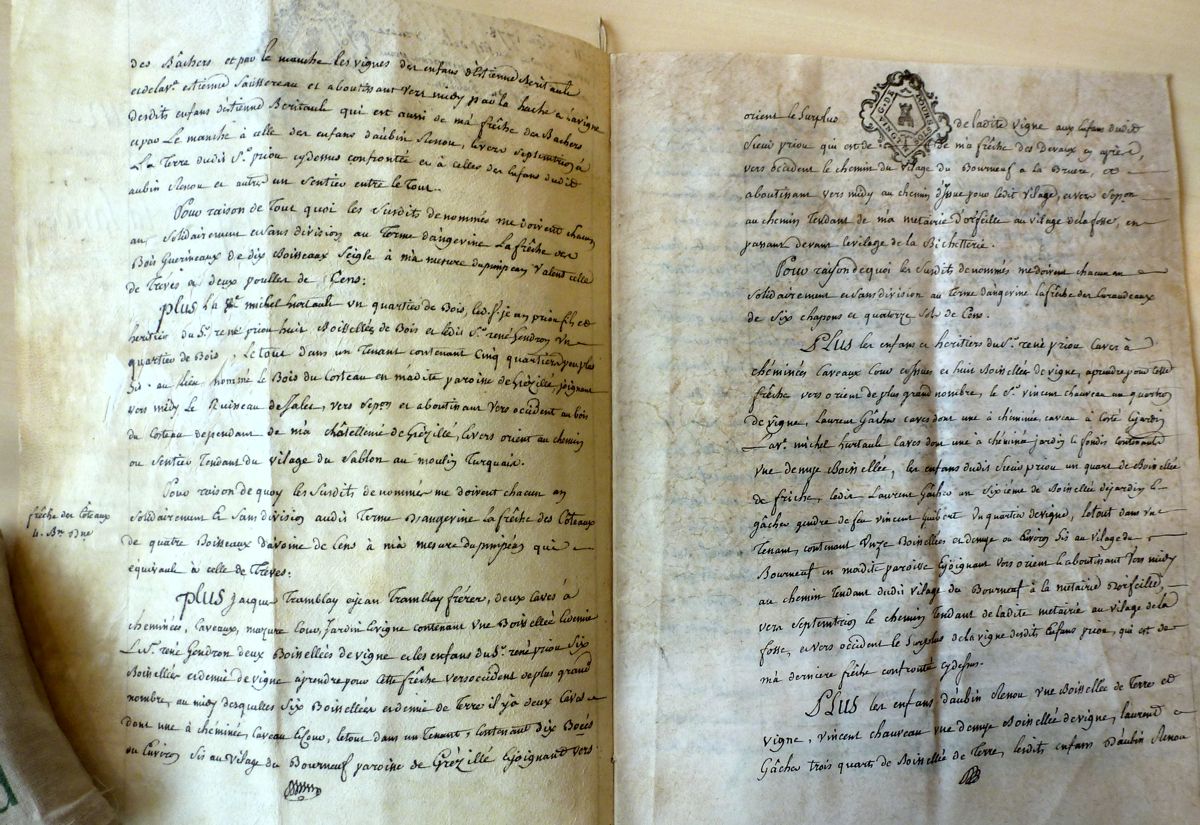 des Bâchers et par le manche les vignes des enfans d'Estienne Beritault
et de la v.e estienne Saussereau et aboutissant vers midy par la hache a la vigne
desdits enfans d'estienne Beritault qui est aussi de ma frêche des Bachers
et par Le manche à celle des enfans d'aubin Renou, et vers septentrion à
La Terre dudit S.r priou cydessus confrontée et à celles des Enfans dudit
aubin Renou et autres un Sentier entre le Tour.
Pour raison de Tout quoi les Susdits denommés me doivent chacun
au Solidairement et sans division au Terme d'angevine La frêche des
Bois Guerineaux de dix Boisseaux Seigle à ma mesure du pimpean Valent celle
de Trèves et deux poulles de Cens:
plus La michel hurtault un quartier de Bois, les S.rs jean priou fils et
heritier du S.r rené priou huit Boissellées de Bois et ledit S.r rené Gendron un
quartier de Bois, Le tout dans un Tenant contenant Cinq quartiers peu plus
Sis au lieu nommé le Bois du Corteau en madite paroisse de Grézillé, joignant
vers midy Le Ruisseau de Saler, vers Sep.on et aboutissant Vers occident au bois
du Corteau dependant de ma châtellenie de Grézillé, et vers orient au chemin
ou Sentier Tendant du vilage du Sablon au moulin Turquais.
Pour raison de quoy les Susdits denommés me doivent chacun an
Solidairement et Sans division audit Terme D'angevine la frêche des Côteaux
de quatre Boisseaux d'avoine de Cens à ma mesure du pimpean qui
equivault à celle de Trèves:
frêche des Côteaux
4. B.x
plus Jacque Tramblay et jean Tramblay frères, deux Caves à
cheminées, Caveaux, mazure Cour, Jardin et vigne contenant une Boissellée et demie
Le S.r rené Gendron deux Boissellées de vigne et les enfans du S.r rené priou Six
Boissellées et demie de vigne a prendre pour cette frêche vers occident de plus grand
nombre, au midy desquelles Six Boissellées et demie de Terre il y à deux Caves
dont une à cheminée, Caveau et Cour, le tout dans un Tenant, contenant dix Boées
ou Environ Sis au vilage du Bourneuf paroisse de Grézillé Et joignant vers
G. DE TOURS
VINGT SOLS
orient le Surplus de ladite vigne aux Enfans dudit
Sieur priou qui est de de ma frêche des Devaux cy après,
vers occident le chemin du vilage du Bourneuf a la Bruere, et
aboutissant vers midy au chemin d'issue pour ledit vilage, et vers Sep.on
au chemin Tendant de ma metairie d'orfeille au vilage de la fosse, en
passant devant le vilage de la Bichetterie.
Pour raison de quoi les Susdits denommés me doivent chacun an
Solidairement et Sans division au Terme d'angevine la frêche des Caraudeaux
de Six chapons et quatorze Sols de Cens.
PLUS les enfans et heritiers du S.r rené priou Caves à
chéminées Caveaux Cour et issues et huit Boissellées de vigne, a prendre pour cette
frêche vers orient de plus grand nombre, le S.r vincent chauveau un quartier
de vigne, Laurent Gâcher caves dont une à chéminée, caveau à Coste et jardin
La v.e michel hurtault Caves dont une a chéminée jardin et fondis contenant
une demye Boissellée, les enfans dudit Sieur priou un quart de Boissellée
de friche, ledit Laurent Gâcher un Sixième de Boissellée de jardin et
gâcher gendre de feu vincent Guibert un quartier de vigne, le tout dans un
Tenant, contenant Unze Boissellées et demye ou Environ Sis au vilage du
Bourneuf en madite paroisse Et joignant vers orient et aboutissant Vers midy
au chemin Tendant dudit vilage du Bourneuf à la metairie D'orfeille,
vers Septentrion le chemin Tendant de ladite metairie au vilage de la
fosse, et vers occident le Surplus de la vigne desdits Enfans priou, qui est de
ma derniere frêche confrontée cydessus.
PLUS les enfans d'aubin Renou une Boissellée de Terre et
vigne, vincent chauveau une demye Boissellée de vigne, laurent
Gâcher trois quarts de Boissellée de Terre, lesdits enfans D'aubin Renou